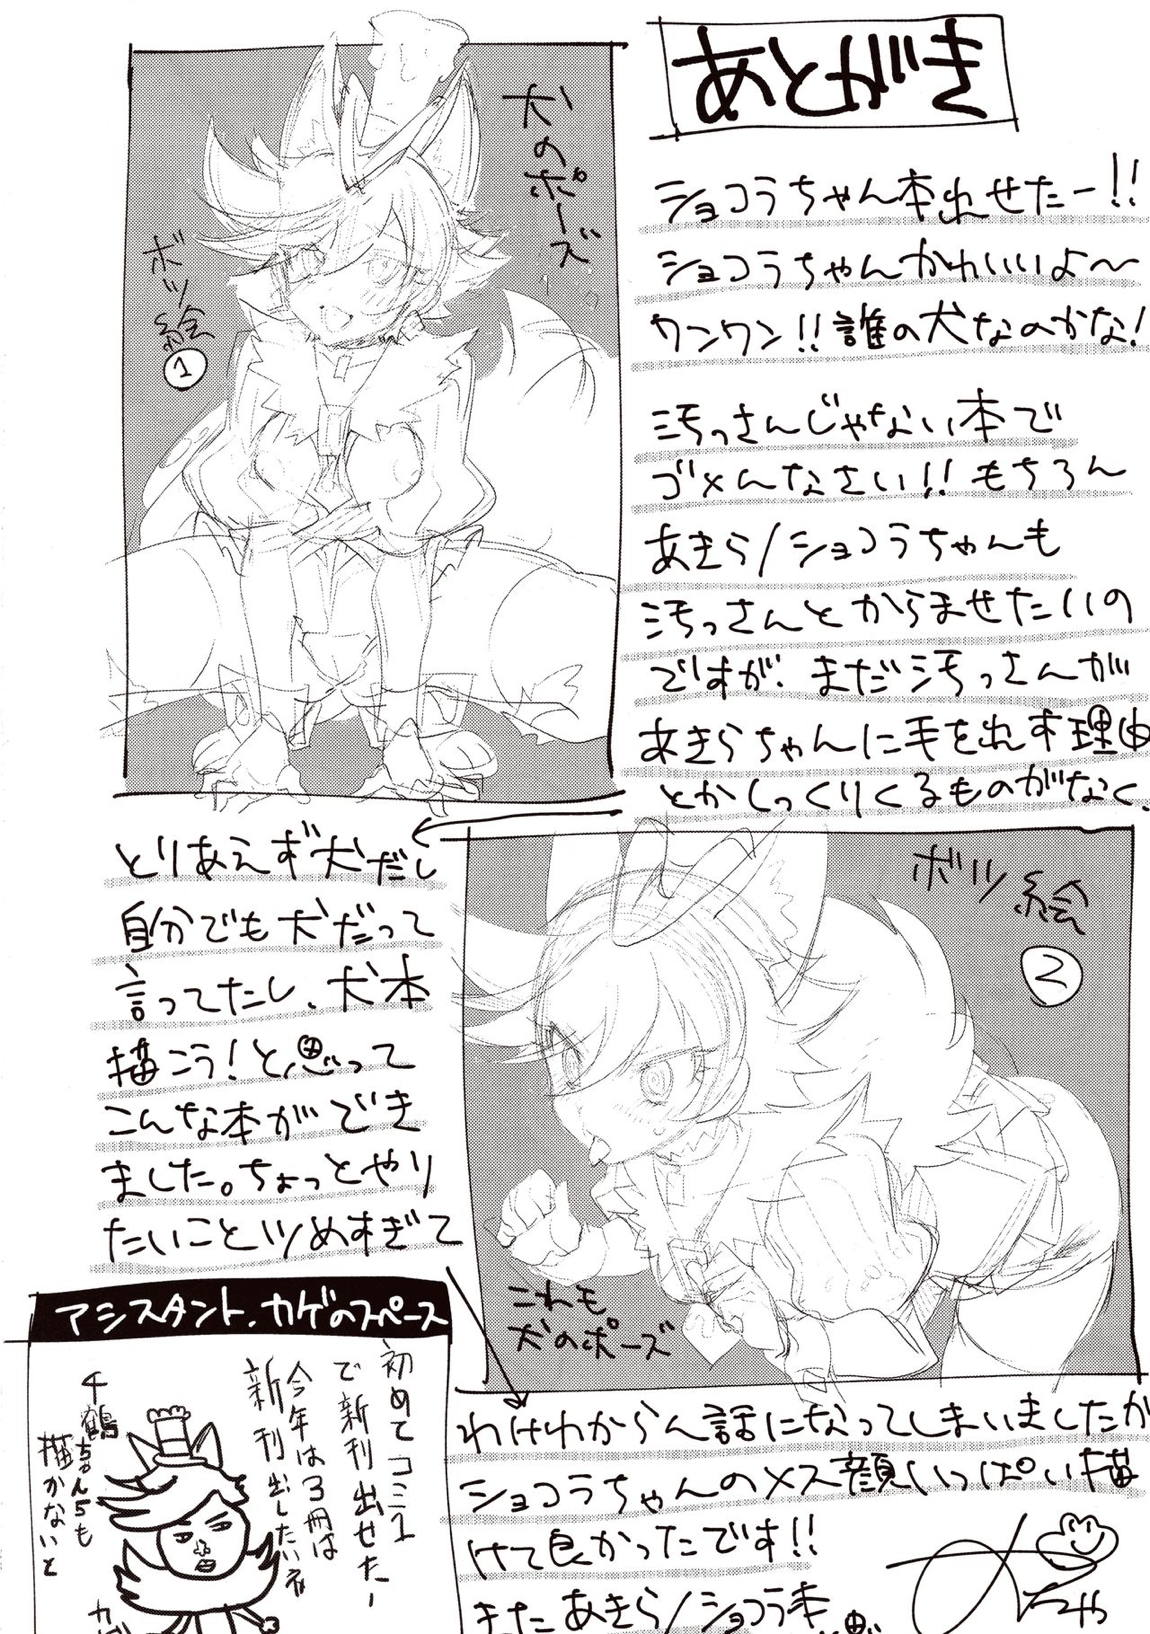 あとがき
ショコラちゃん本出せたー!!
ショコラちゃんかわいいよ〜
ワンワン!!誰の犬なのかな!
汚っさんじゃない本で
ゴメんなさい!!もちろん
あきら/ショコラちゃんも
汚っさんとからませたいの
ですが、まだ汚っさんが
あきらちゃんに手を出す理由
とかしっくりくるものがなく、
とりあえず犬だし
自分でも犬だって
言ってたし、犬本
描こう!と思って
こんな本ができ
ました。ちょっとやり
たいことツめすぎて
わけわからん話になってしまいましたが
ショコラちゃんのメス顔いっぱい描
けて良かったです!!
またあきら/ショコラ本
犬のポーズ
ボツ
絵
①
ボツ絵
②
これも
犬のポーズ
アシスタント.カゲのスペース
初めてコミ1
で新刊出せたー
今年は3冊は
新刊出したいネ
千鶴ちゃん5も
描かないと
カゲ